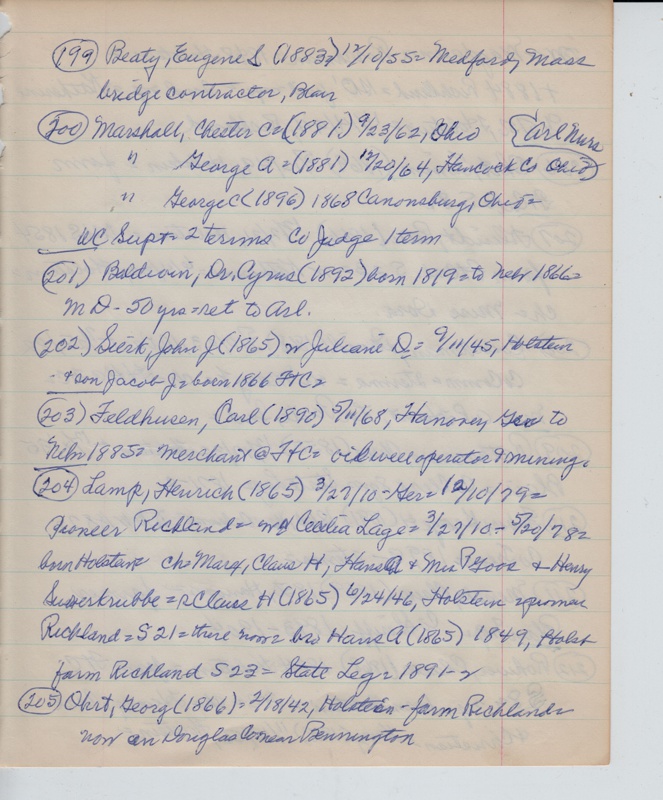 (199) Beaty, Eugene S (1883) 12/10/55 = Medford, Mass
bridge contractor, Blair
(200) Marshall, Chester C = (1881) 9/23/62, Ohio {Arl Nurs
" George A = (1881) 12/20/64, Hancock Co Ohio)
" George C (1896) 1868 Canonsburg, Ohio =
WC Supt = 2 terms Co Judge 1 term
(201) Baldwin, Dr. Cyrus (1892) born 1819 = to Nebr 1866 =
M D - 50 yrs = ret to Arl.
(202) Sierk, John J (1865) w Juliane D = 9/11/45, Holstein
- + son Jacob J = born 1866 FtC =
(203) Feldhusen, Carl (1890) 5/11/68, Hanover, Ger to
Nebr 1885 = merchant @ FtC = oil well operator & mining.
(204) Lamp, Henrich (1865) 3/27/10 - Ger = 12/10/79 =
Pioneer Richland = Cecilia Lage = 3/27/10 - 5/20/78 =
born Holstein ch = Marx, Claus H, Hans A + Mrs P Goos + Henry
Suverkrubbe = Claus H (1865) 6/24/46, Holstein = pioneer
Richland = S 21 = there now = bro Hans A (1865) 1849, Holst
farm Richland S 23 = State Legr 1891-2
(205) Ohrt, Georg (1866) = 2/18/42, Holstein - farm Richland =
now on Douglas Co near Bennington